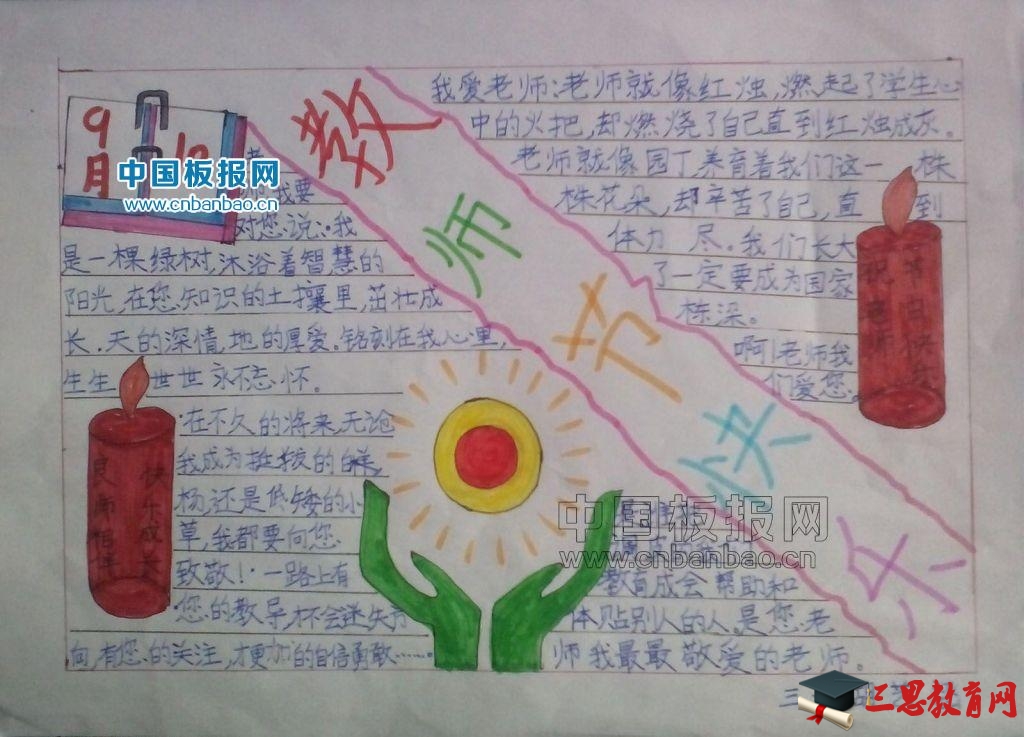 教师节快乐
9月10
中国板报网
www.cnbanbao.cn
我要
对您说：我
是一棵绿树，沐浴着智慧的
阳光，在您知识的土壤里，茁壮成
长.天的深情，地的厚爱。铭刻在我心里，
生生世世永不忘怀。
在不久的将来，无论
我成为挺拔的白
杨，还是低矮的小
草，我都要向您
致敬！一路上有
您的教导，才不会迷失方
向，有您的关注，才更加的自信勇敢……
良师相伴
快乐成长
我爱老师：老师就像红烛，燃起了学生心
中的火把，却燃烧了自己直到红烛成灰。
老师就像园丁养育着我们这一株
株花朵，却辛苦了自己，直到
体力 尽。我们长大
了一定要成为国家
栋梁。
啊！老师我
们爱您。
祝老师
节日快乐
中国板报网
www.cnbanbao.cn
教育成会帮助和
体贴别人的人。是您老
师我最最敬爱的老师。
三思教育网